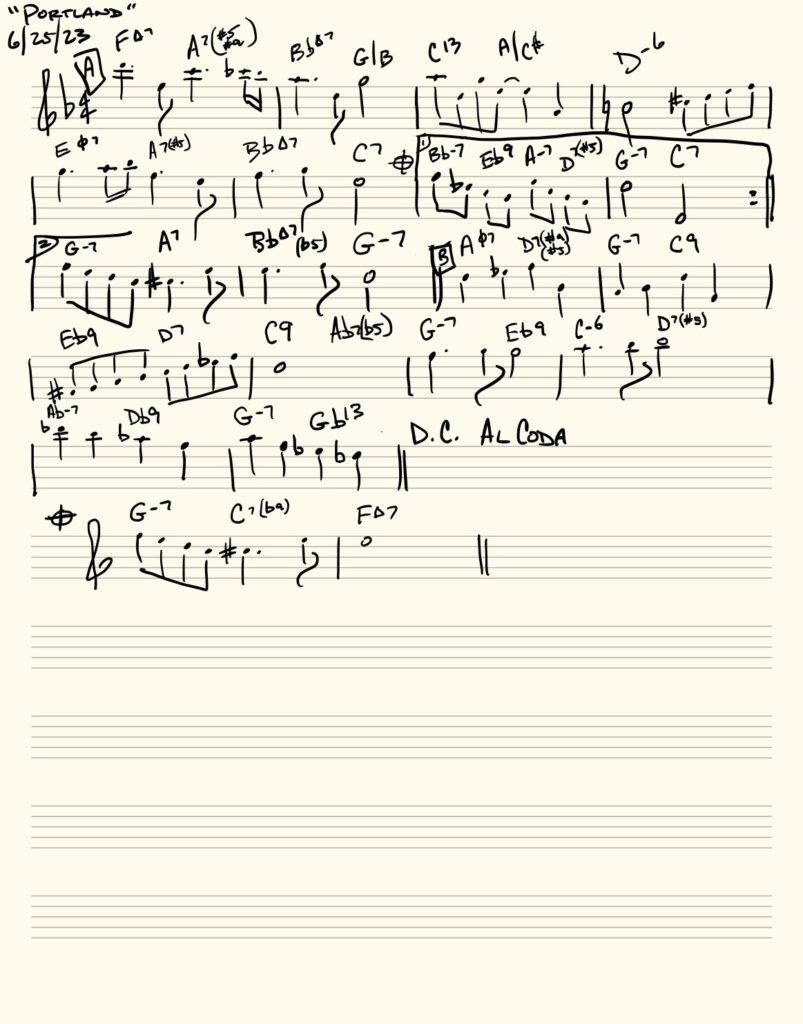 "PORTLAND"
6/25/23
A FΔ7 A7(#5 #9) BbΔ7 G/B C13 A/C# D-6
Eø7 A7(#5) BbΔ7 C7 1 Bb-7 Eb9 A-7 D7(#5) G-7 C7
2 G-7 A7 BbΔ7(b5) G-7 B Aø7 D7(#9 #5) G-7 C9
Eb9 D7 C9 Ab7(b5) G-7 Eb9 C-6 D7(#5)
Ab-7 Db9 G-7 Gb13 D.C. AL CODA
G-7 C7(b9) FΔ7